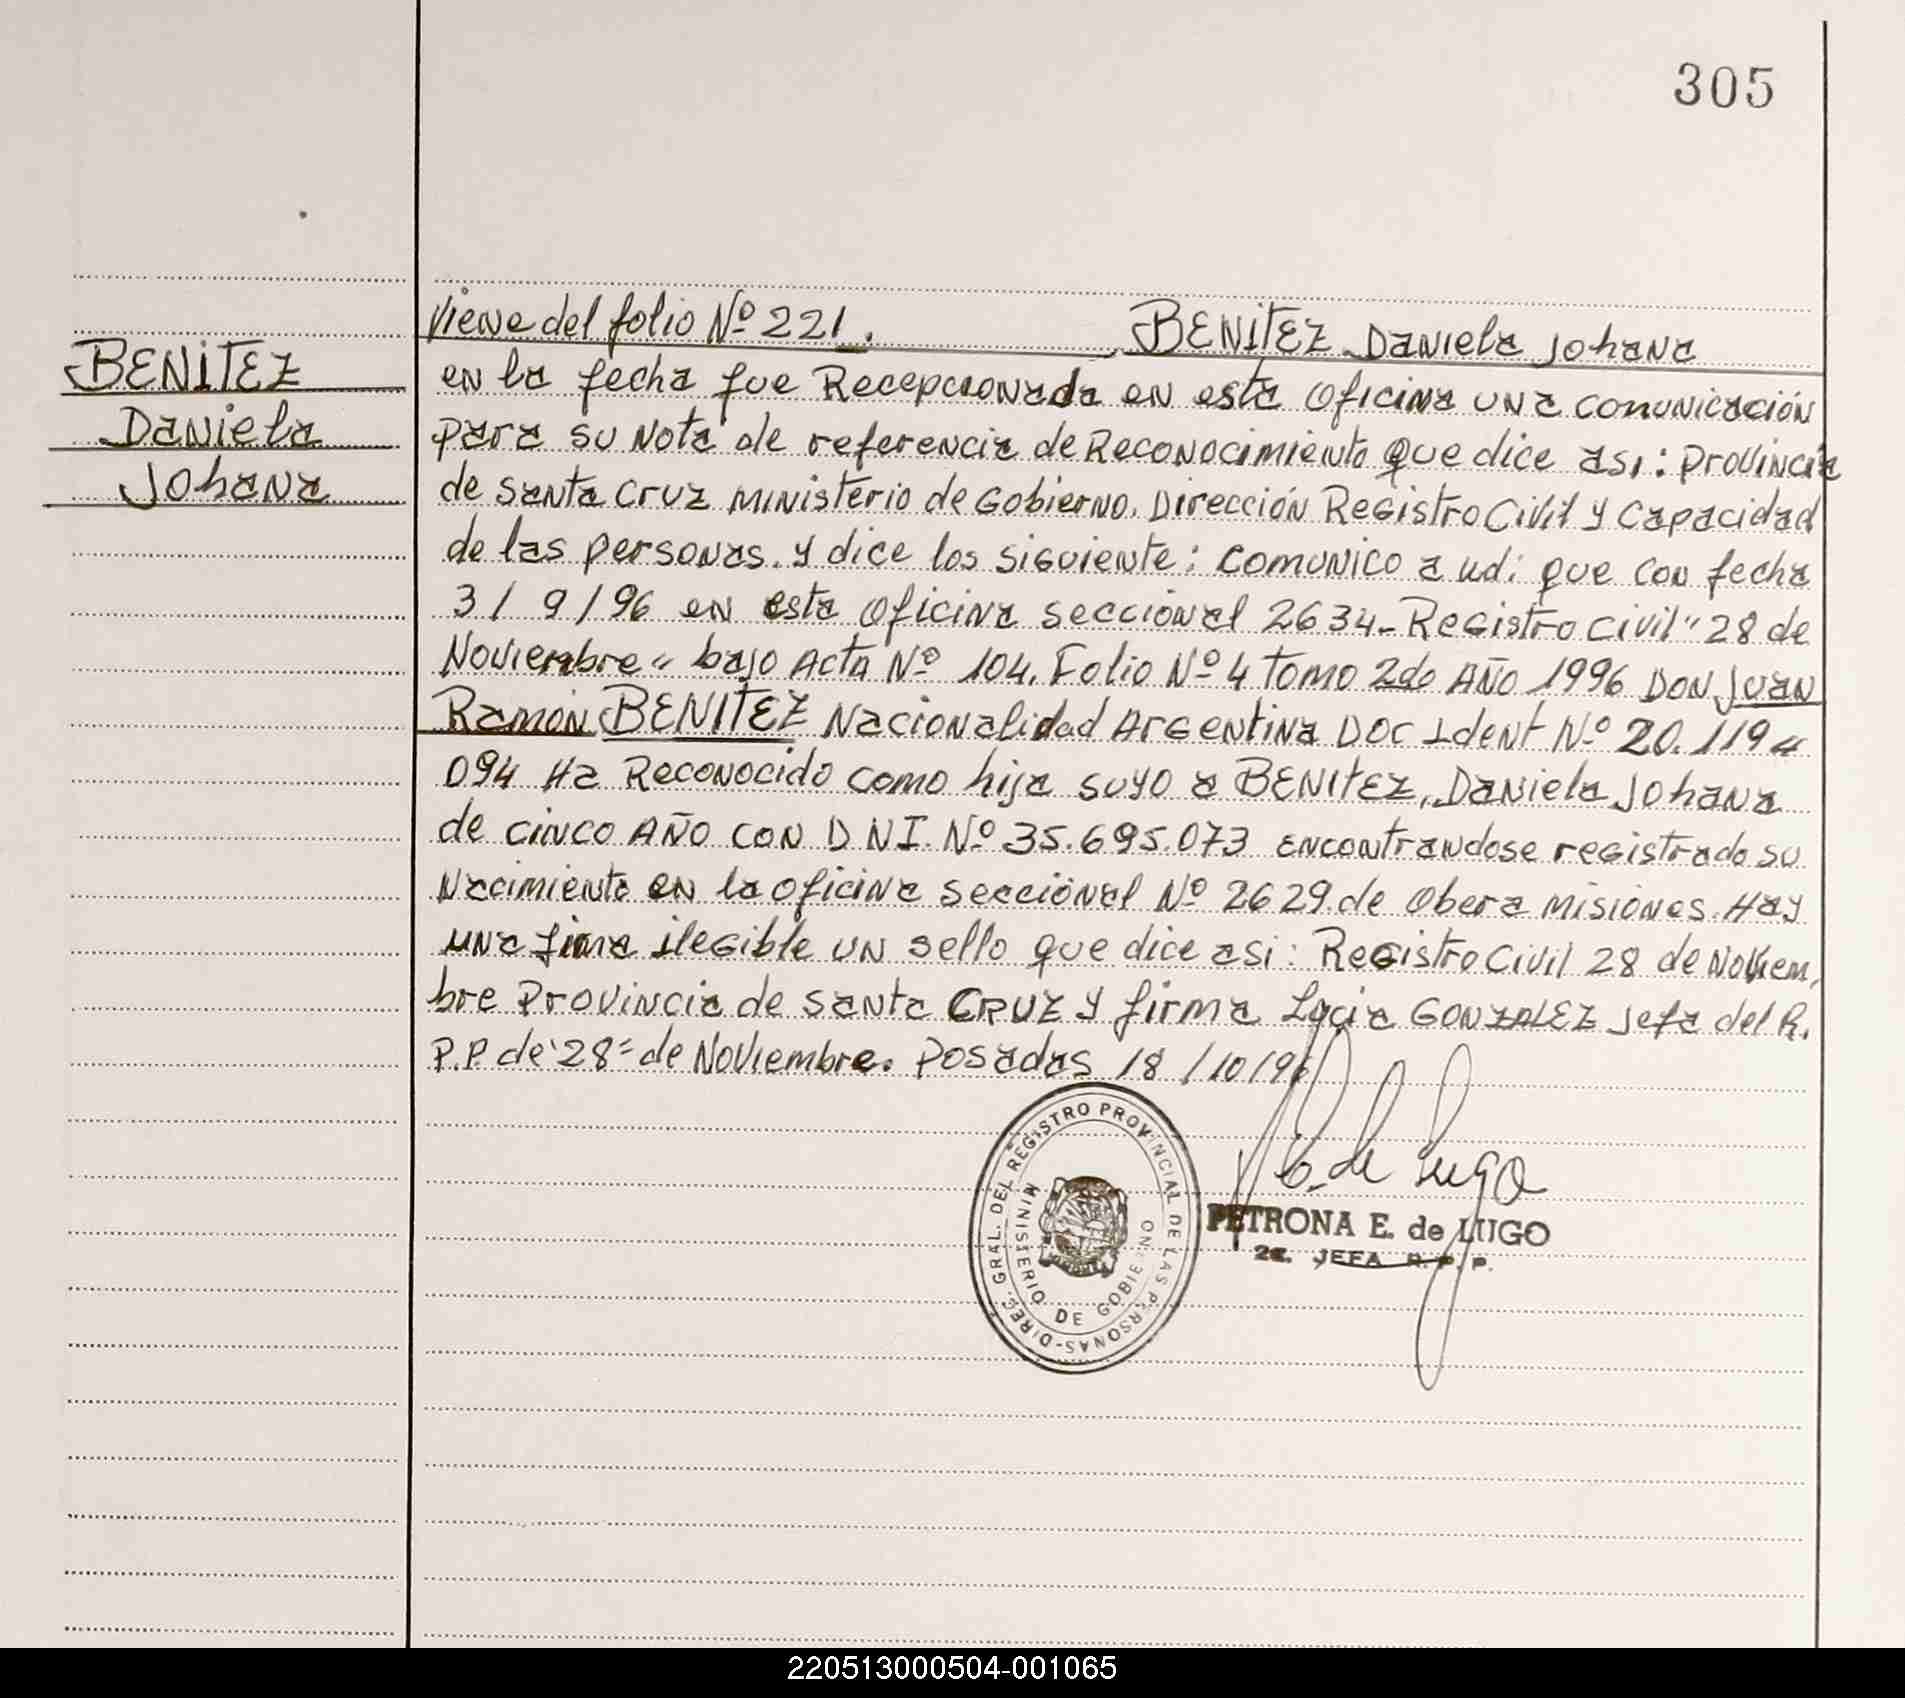 305
BENITEZ
Daniela
Johana
Viene del folio Nº 221. BENITEZ Daniela Johana
en la fecha fue Recepcionada en esta oficina una comunicación
para su nota de referencia de Reconocimiento que dice asi: provincia
de Santa Cruz Ministerio de Gobierno. Dirección Registro Civil y Capacidad
de las personas. y dice los siguiente: comunico a ud: que con fecha
3/9/96 en esta oficina seccional 2634-Registro Civil "28 de
Noviembre" bajo Acta Nº 104. Folio Nº 4 Tomo 2do Año 1996 DON Juan
Ramón BENITEZ Nacionalidad Argentina DOC Ident Nº 20.119
094 Ha Reconocido como hija suyo a BENITEZ, Daniela Johana
de cinco Año con D N I. Nº 35.695.073 encontrandose registrado su
Nacimiento en la oficina seccional Nº 2629 de Obera Misiones. Hay
una firma ilegible un sello que dice asi: Registro Civil 28 de Noviem,
bre Provincia de Santa CRUZ y firma Lucia GONZALEZ Jefa del R.
P.P. de "28" de Noviembre. Posadas 18/10/96
DIREC. GRAL. DEL REGISTRO PROVINCIAL DE LAS PERSONAS-
MINISTERIO DE GOBIERNO
de Lugo
PETRONA E. de LUGO
2a. JEFA R. P. P.
220513000504-001065